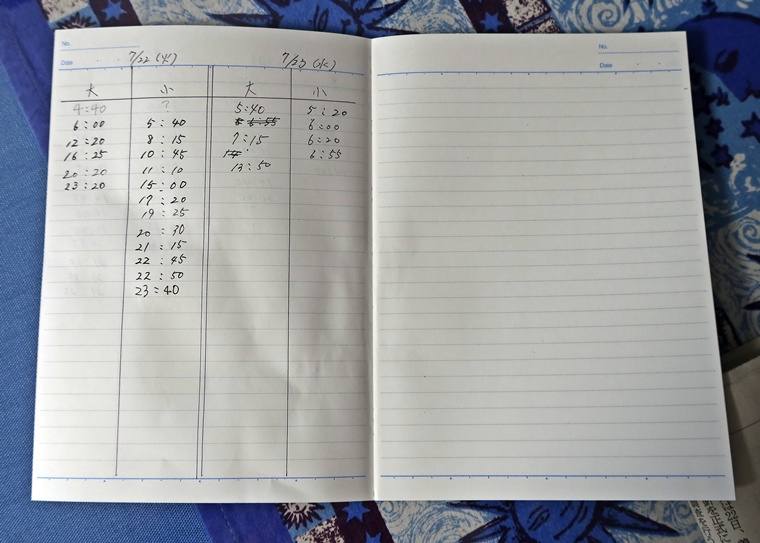 No.
Date
7/22 (火) 7/23 (水)
大 小 大 小
4:40 ? 5:40 5:20
6:00 5:40 6:55 6:00
12:20 8:15 7:15 6:20
16:25 10:45 14: 6:55
20:20 11:10 13:50
23:20 15:00
17:20
19:25
20:30
21:15
22:45
22:50
23:40
No.
Date